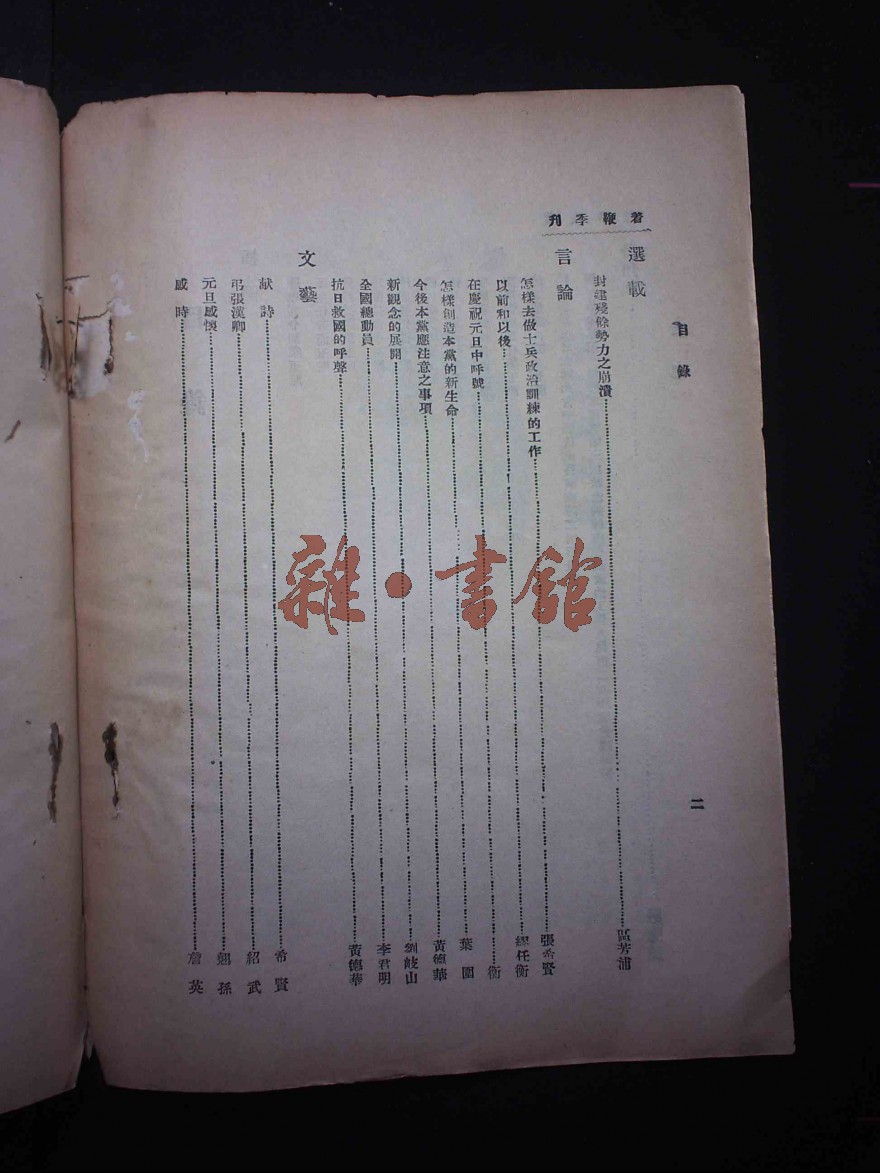 着鞭季刊
目錄
二
選載
封建殘餘勢力之崩潰……區芳浦
言論
怎樣去做士兵政治訓練的工作……張希賢
以前和以後……繆任衡
在慶祝元旦中呼號……衡
怎樣創造本黨的新生命……葉園
今後本黨應注意之事項……黃德華
新觀念的展開……劉岐山
全國總動員……李君明
抗日救國的呼聲……黃德華
文藝
献詩……希賢
弔張漢卿……紹武
元旦感懷……翹孫
感時……詹英
雜·書館